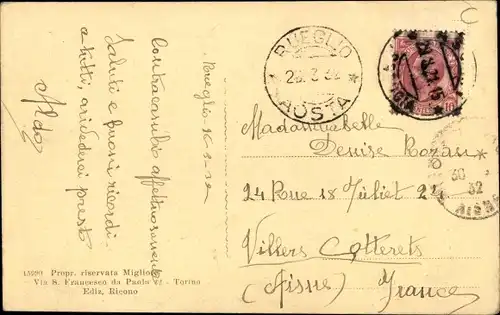 Brueglio 26-3-32
Contracambio affettuosamente
Saluti e buoni ricordi.
a tutti, arivederci presto
Aldo
RUEGLIO
26.3.32
AOSTA
Madamigabelle
Denise Rozan
24 Rue 18 Juliet 24
Villers Cotterets
(Aisne) France
30
32
AISNE
15690 Propr. riservata Migliore
Via S. Francesco da Paola - Torino
Ediz. Ricono